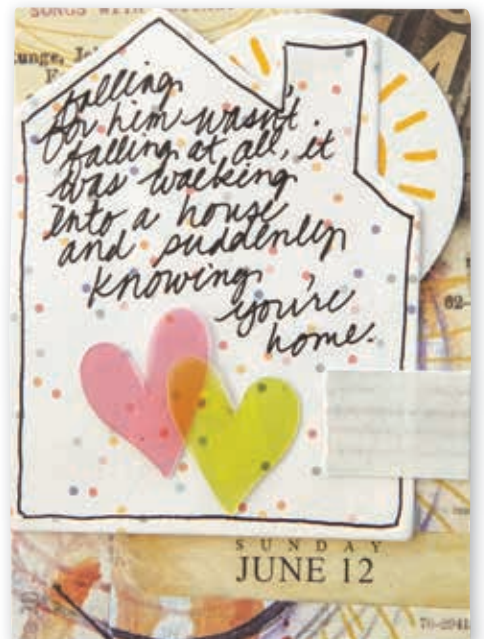 SONGS WITH
unge, Jo
falling
for him wasn't
falling at all, it
was walking
into a house
and suddenly
knowing
you're
home.
62-
SUNDAY
JUNE 12
70-2941